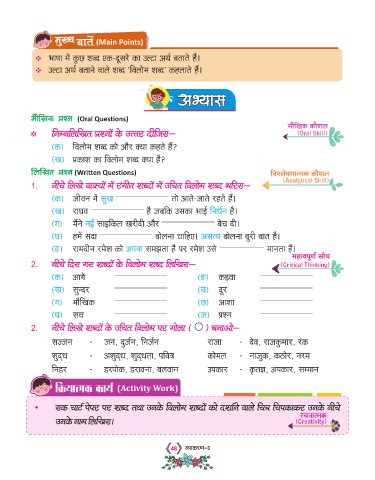 मुख्य बातें (Main Points)
❖ भाषा में कुछ शब्द एक-दूसरे का उल्टा अर्थ बताते हैं।
❖ उल्टा अर्थ बताने वाले शब्द 'विलोम शब्द' कहलाते हैं।
अभ्यास
मौखिक प्रश्न (Oral Questions)
मौखिक कौशल
(Oral Skill)
❖ निम्नलिखित प्रश्नों के उत्तर दीजिए–
(क) विलोम शब्द को और क्या कहते हैं?
(ख) प्रकाश का विलोम शब्द क्या है?
लिखित प्रश्न (Written Questions)
विश्लेषणात्मक कौशल
(Analytical Skill)
1. नीचे लिखे वाक्यों में रंगीन शब्दों में उचित विलोम शब्द भरिए–
(क) जीवन में सुख ____________ तो आते-जाते रहते हैं।
(ख) राघव ____________ है जबकि उसका भाई निर्धन है।
(ग) मैंने नई साइकिल खरीदी और ____________ बेच दी।
(घ) हमें सदा ____________ बोलना चाहिए। असत्य बोलना बुरी बात है।
(ङ) रामदीन रमेश को अपना समझता है पर रमेश उसे ____________ मानता है।
महत्वपूर्ण सोच
(Critical Thinking)
2. नीचे दिए गए शब्दों के विलोम शब्द लिखिए–
(क) आगे ____________ (ङ) कड़वा ____________
(ख) सुन्दर ____________ (च) दूर ____________
(ग) मौखिक ____________ (छ) आशा ____________
(घ) सच ____________ (ज) प्रश्न ____________
2. नीचे लिखे शब्दों के उचित विलोम पर गोला ( ○ ) बनाओ–
सज्जन - जन, दुर्जन, निर्जन राजा - देव, राजकुमार, रंक
शुद्ध - अशुद्ध, शुद्धता, पवित्र कोमल - नाजुक, कठोर, नरम
निडर - डरपोक, डरावना, बलवान उपकार - कृतज्ञ, अपकार, सम्मान
क्रियात्मक कार्य (Activity Work)
• एक चार्ट पेपर पर शब्द तथा उनके विलोम शब्दों को दर्शाने वाले चित्र चिपकाकर उनके नीचे
उनके नाम लिखिए।
रचनात्मक
(Creativity)
48 व्याकरण–3